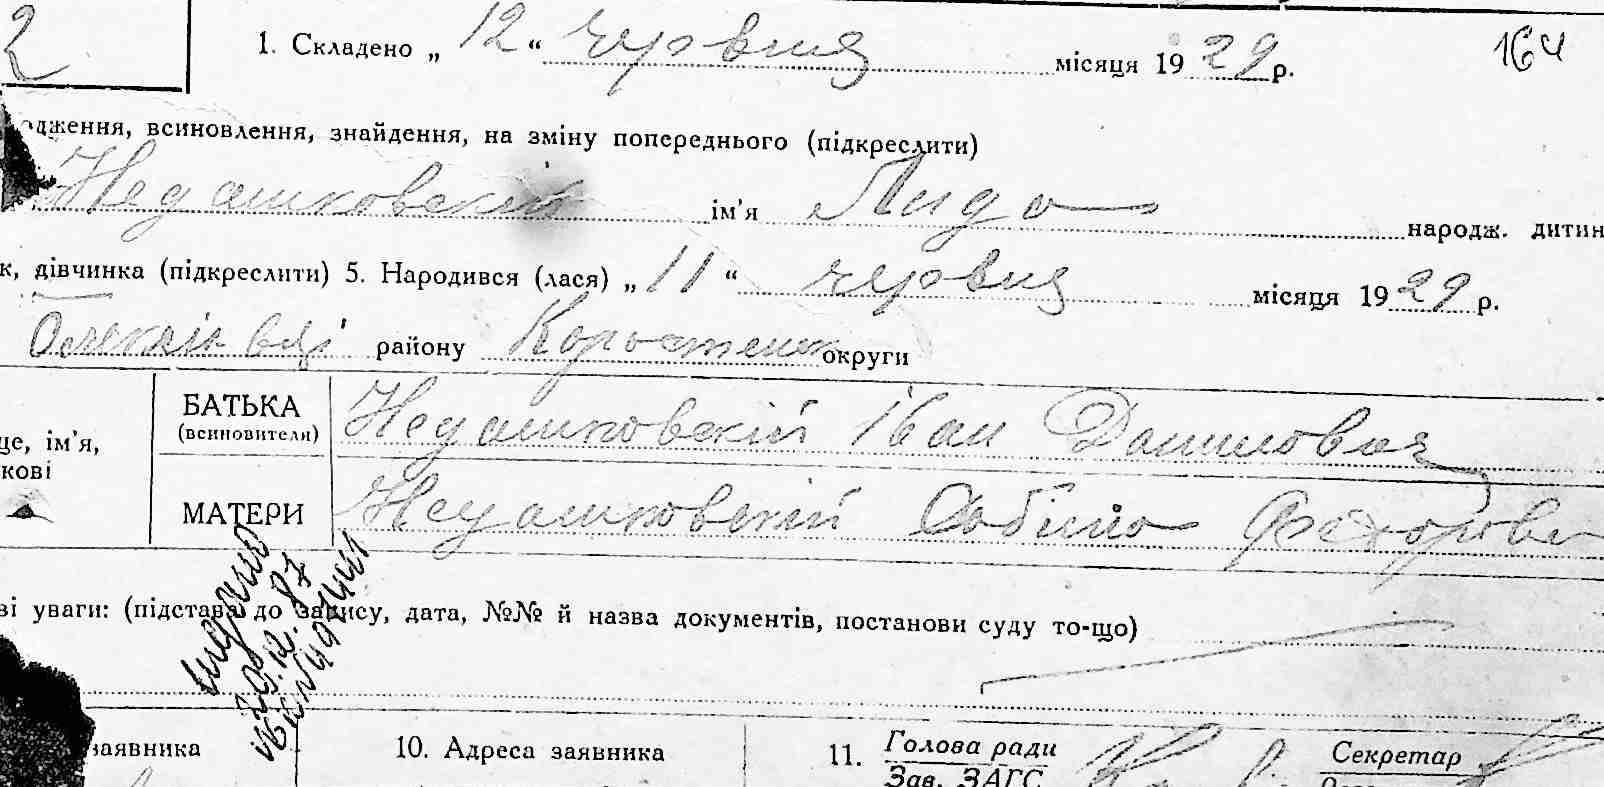 2
1. Складено „ 12 “ червня місяця 1929 р. 164
одження, всиновлення, знайдення, на зміну попереднього (підкреслити)
Недашковский ім’я Лида народж. дитин
к, дівчинка (підкреслити) 5. Народився (лася) „ 11 “ червня місяця 1929 р.
району Коростенск округи
це, ім’я,
кові
БАТЬКА
(всиновителя)
Недашковскій Іван Данилович
МАТЕРИ
Недашковскій Сабіна Федоровн
ві уваги: (підстава до запису, дата, №№ й назва документів, постанови суду то-що)
видано
20.12.87
заявника
10. Адреса заявника
11. Голова ради
Зав. ЗАГС
Секретар